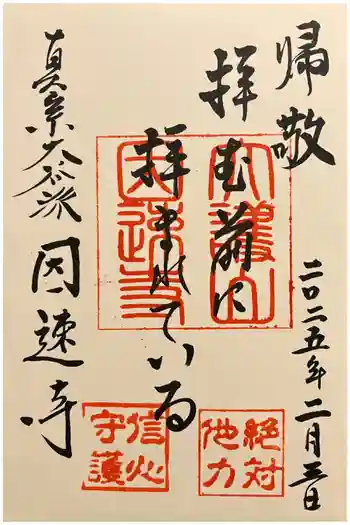 帰敬
二〇二五年二月三日
拝む前に
拝まれている
真宗大谷派
因速寺
絶対
他力
信心
守護